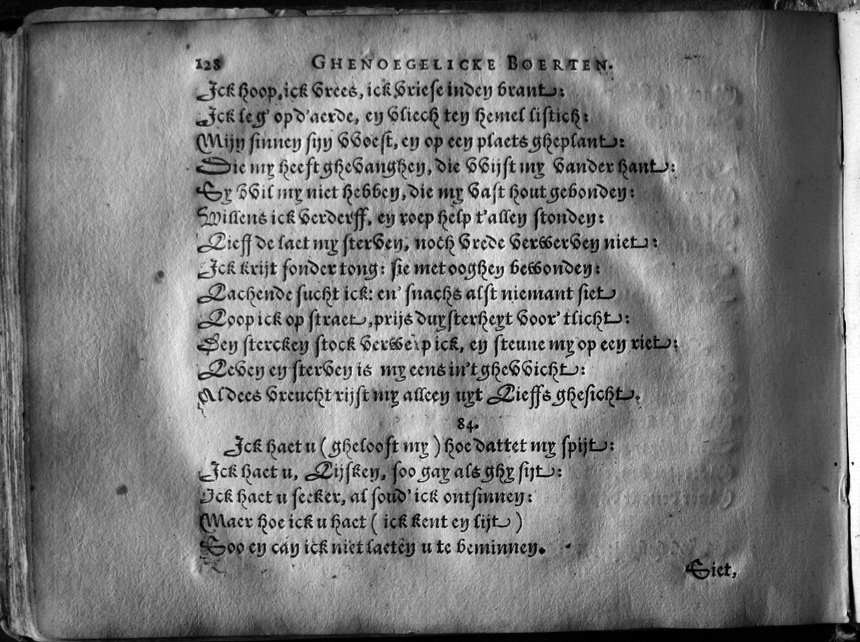 128 GHENOEGELICKE BOERTEN.
Ick hoop, ick vrees, ick vriese inden brant:
Ick leg' op d'aerde, en vliech ten hemel listich:
Mijn sinnen sijn vvoest, en op een plaets gheplant:
Die my heeft ghevanghen, die vvijst my vander hant:
Sy vvil my niet hebben, die my vast hout gebonden:
Willens ick verderff, en roep help t'allen stonden:
Lieff de laet my sterven, noch vrede verwerven niet:
Ick krijt sonder tong: sie met ooghen bewonden:
Lachende sucht ick: en' snachs alst niemant siet
Loop ick op straet, prijs duysterheyt voor 'tlicht:
Den stercken stock verwerp ick, en steune my op een riet:
Leven en sterven is my eens in't ghevvicht:
Al dees vreucht rijst my alleen uyt Lieffs ghesicht.
84.
Ick haet u (ghelooft my) hoe dattet my spijt:
Ick haet u, Lijsken, soo gay als ghy sijt:
Ick haet u seeker, al soud' ick ontsinnen:
Maer hoe ick u haet (ick kent en lijt)
Soo en can ick niet laeten u te beminnen.
Siet,